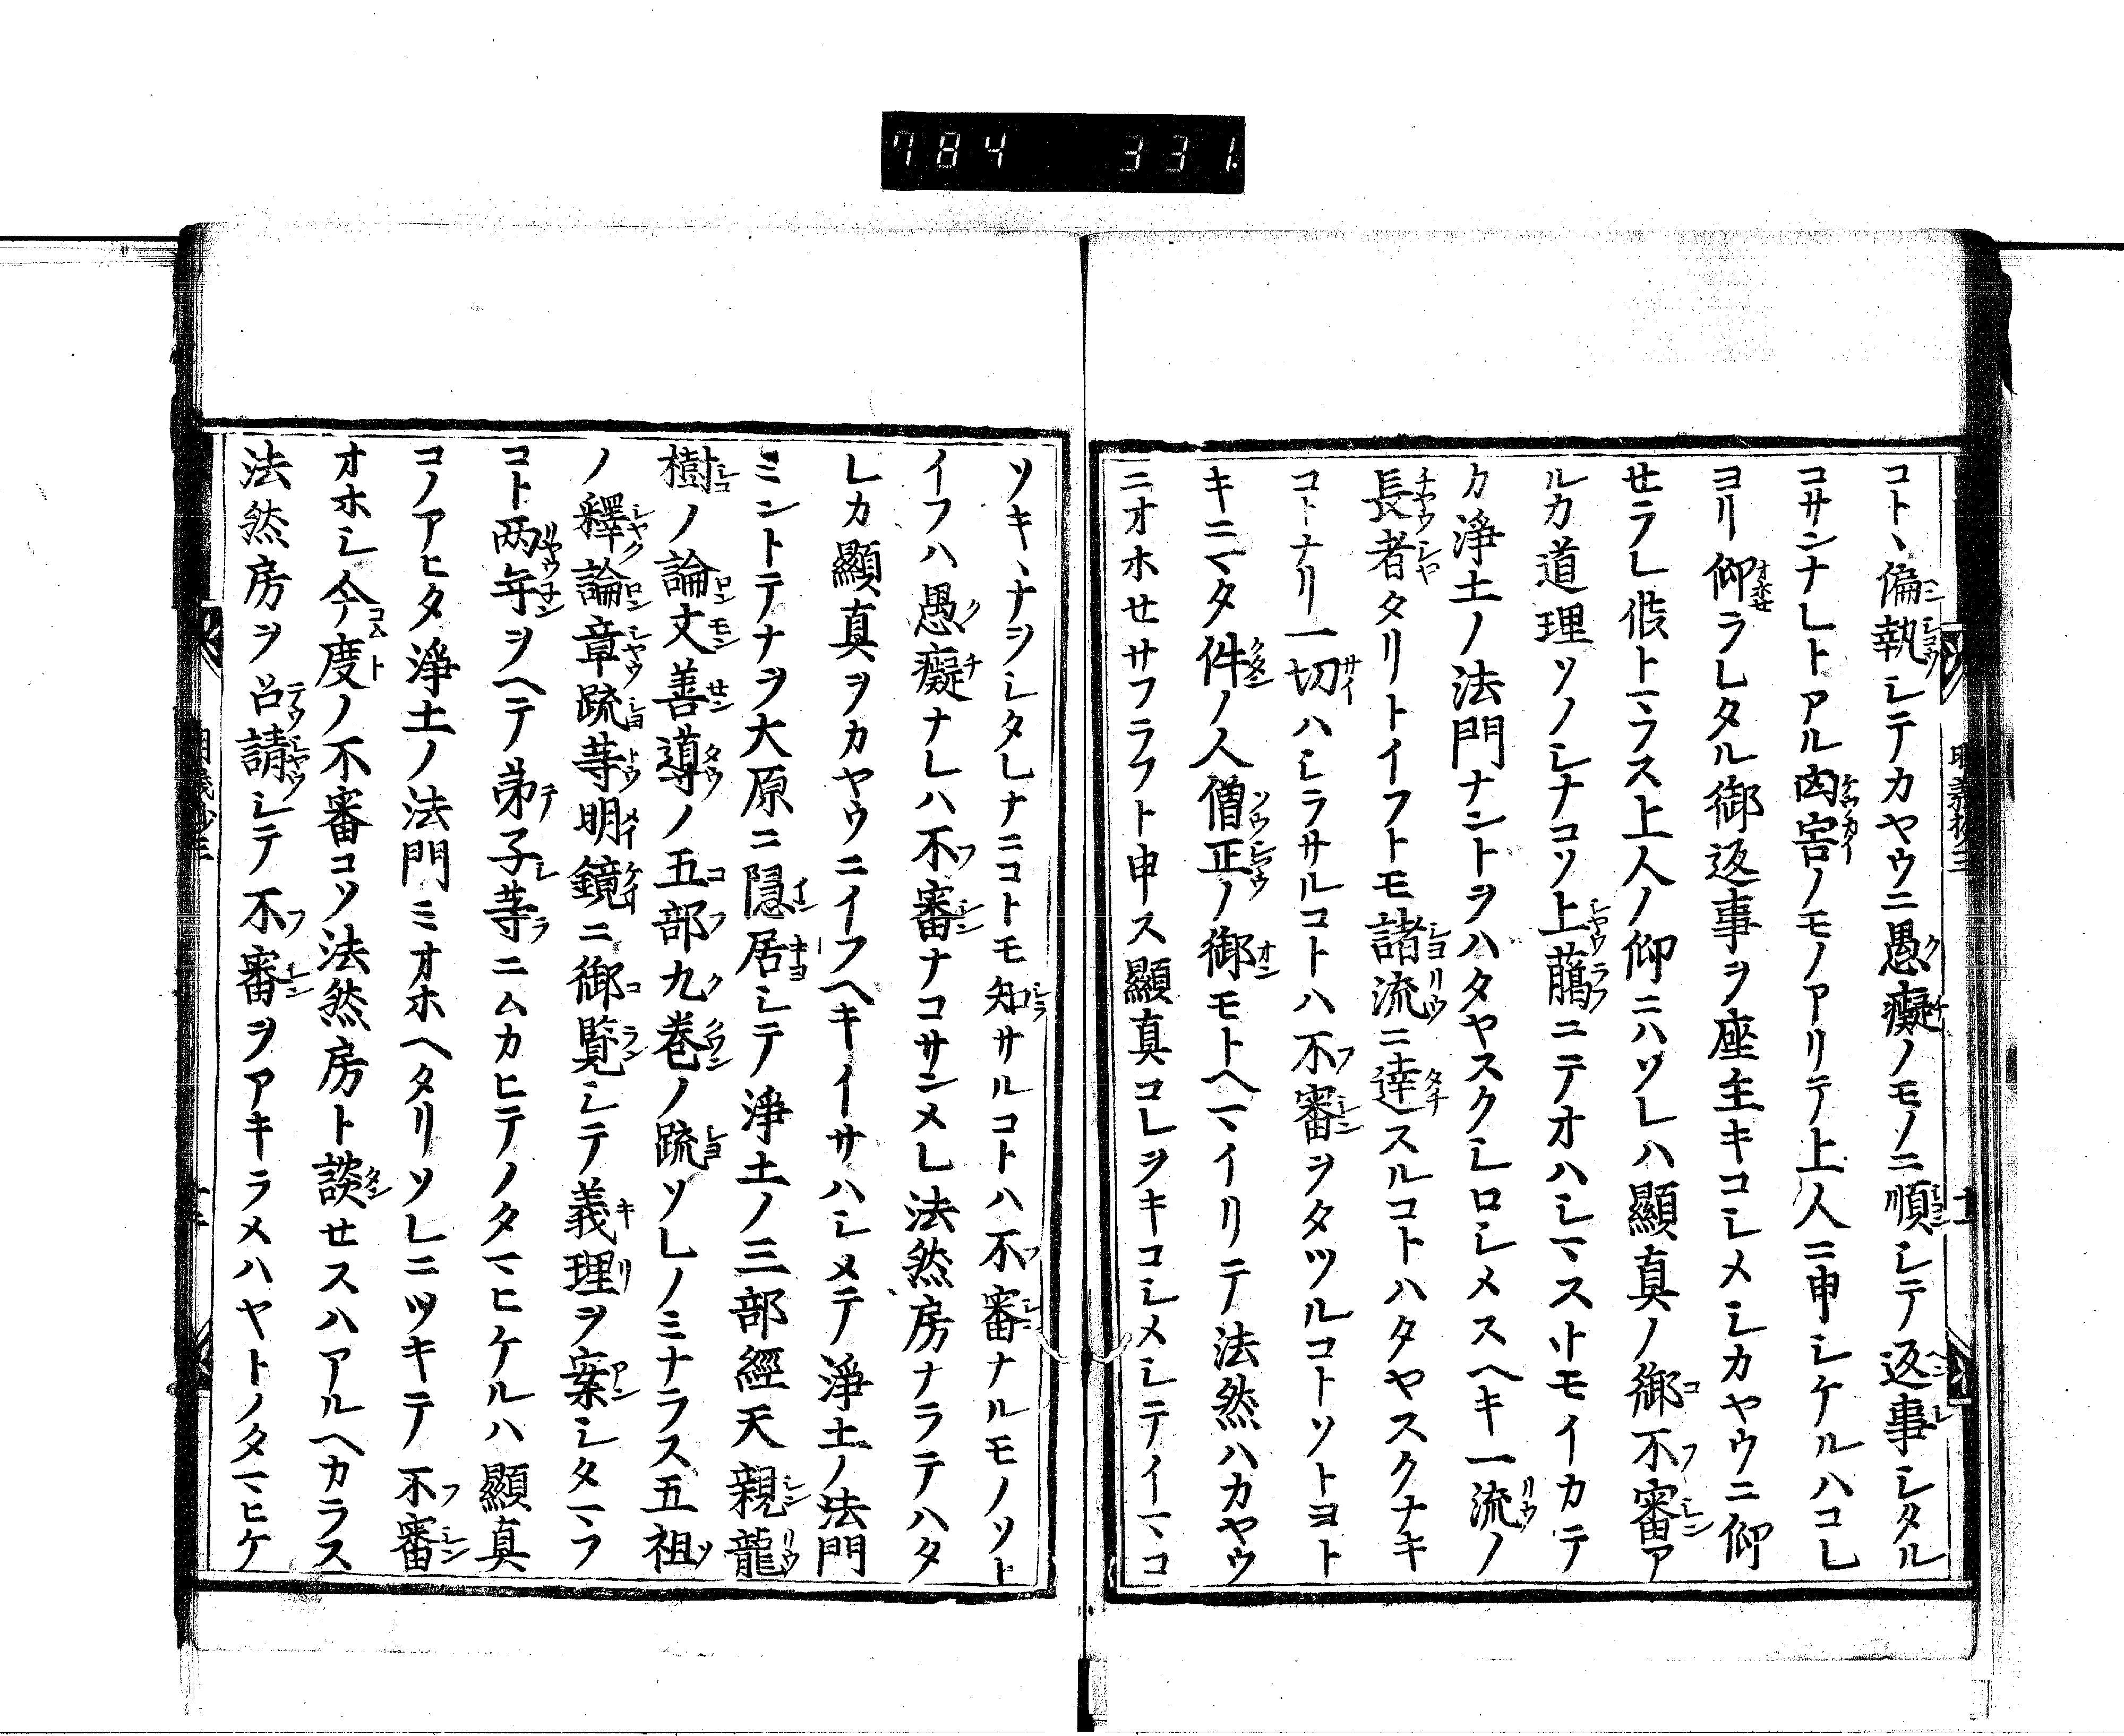 784 331
コト、偏執シテカヤウニ愚癡ノモノニ順シテ返事シタル
コサンナレトアル凶害ノモノアリテ上人ニ申シケルハコレ
ヨリ仰ラレタル御返事ヲ座主キコシメシカヤウニ仰
セラレ候トマラス上人ノ仰ニハソレハ顯真ノ御不審ア
ルカ道理ソノシナコソ上﨟ニテオハシマストモイカテ
カ淨土ノ法門ナントヲハタヤスクシロシメスヘキ一流ノ
長者タリトイフトモ諸流ニ達スルコトハタヤスクナキ
コトナリ一切ハシラサルコトハ不審ヲタツルコトソトヨト
キニマタ件ノ人僧正ノ御モトヘマイリテ法然ハカヤウ
ニオホセサフラフト申ス顯真コレヲキコシメシテイマコ
ソキ、ナヲシタレナニコトモ知サルコトハ不審ナルモノソト
イフハ愚癡ナレハ不審ナコサンメレ法然房ナラテハタ
レカ顯真ヲカヤウニイフヘキイサハシメテ淨土ノ法門
ミントテナヲ大原ニ隱居シテ淨土ノ三部經天親龍
樹ノ論文善導ノ五部九巻ノ疏ソレノミナラス五祖
ノ釋論章疏䓁明鏡ニ御覧シテ義理ヲ案シタマフ
コト两年ヲヘテ弟子䓁ニムカヒテノタマヒケルハ顯真
コノアヒタ淨土ノ法門ミオホヘタリソレニツキテ不審
オホシ今度ノ不審コソ法然房ト談セスハアルヘカラス
法然房ヲ召請シテ不審ヲアキラメハヤトノタマヒケ